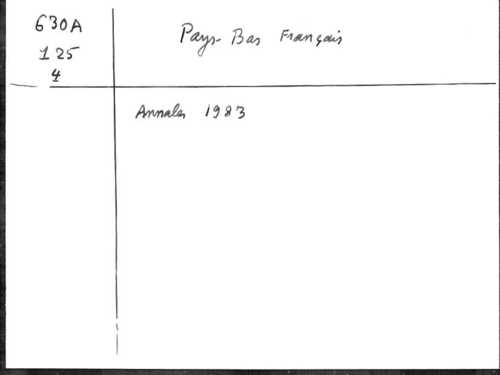 630A
125
4
Pays-Bas Français
Annales 1983